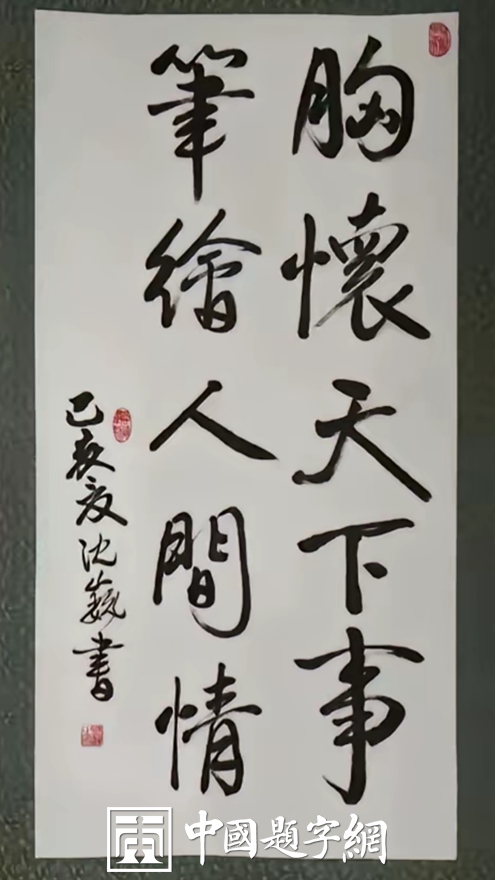 胸懷天下事
筆繪人間情
己亥夏沈巍書
中國題字網